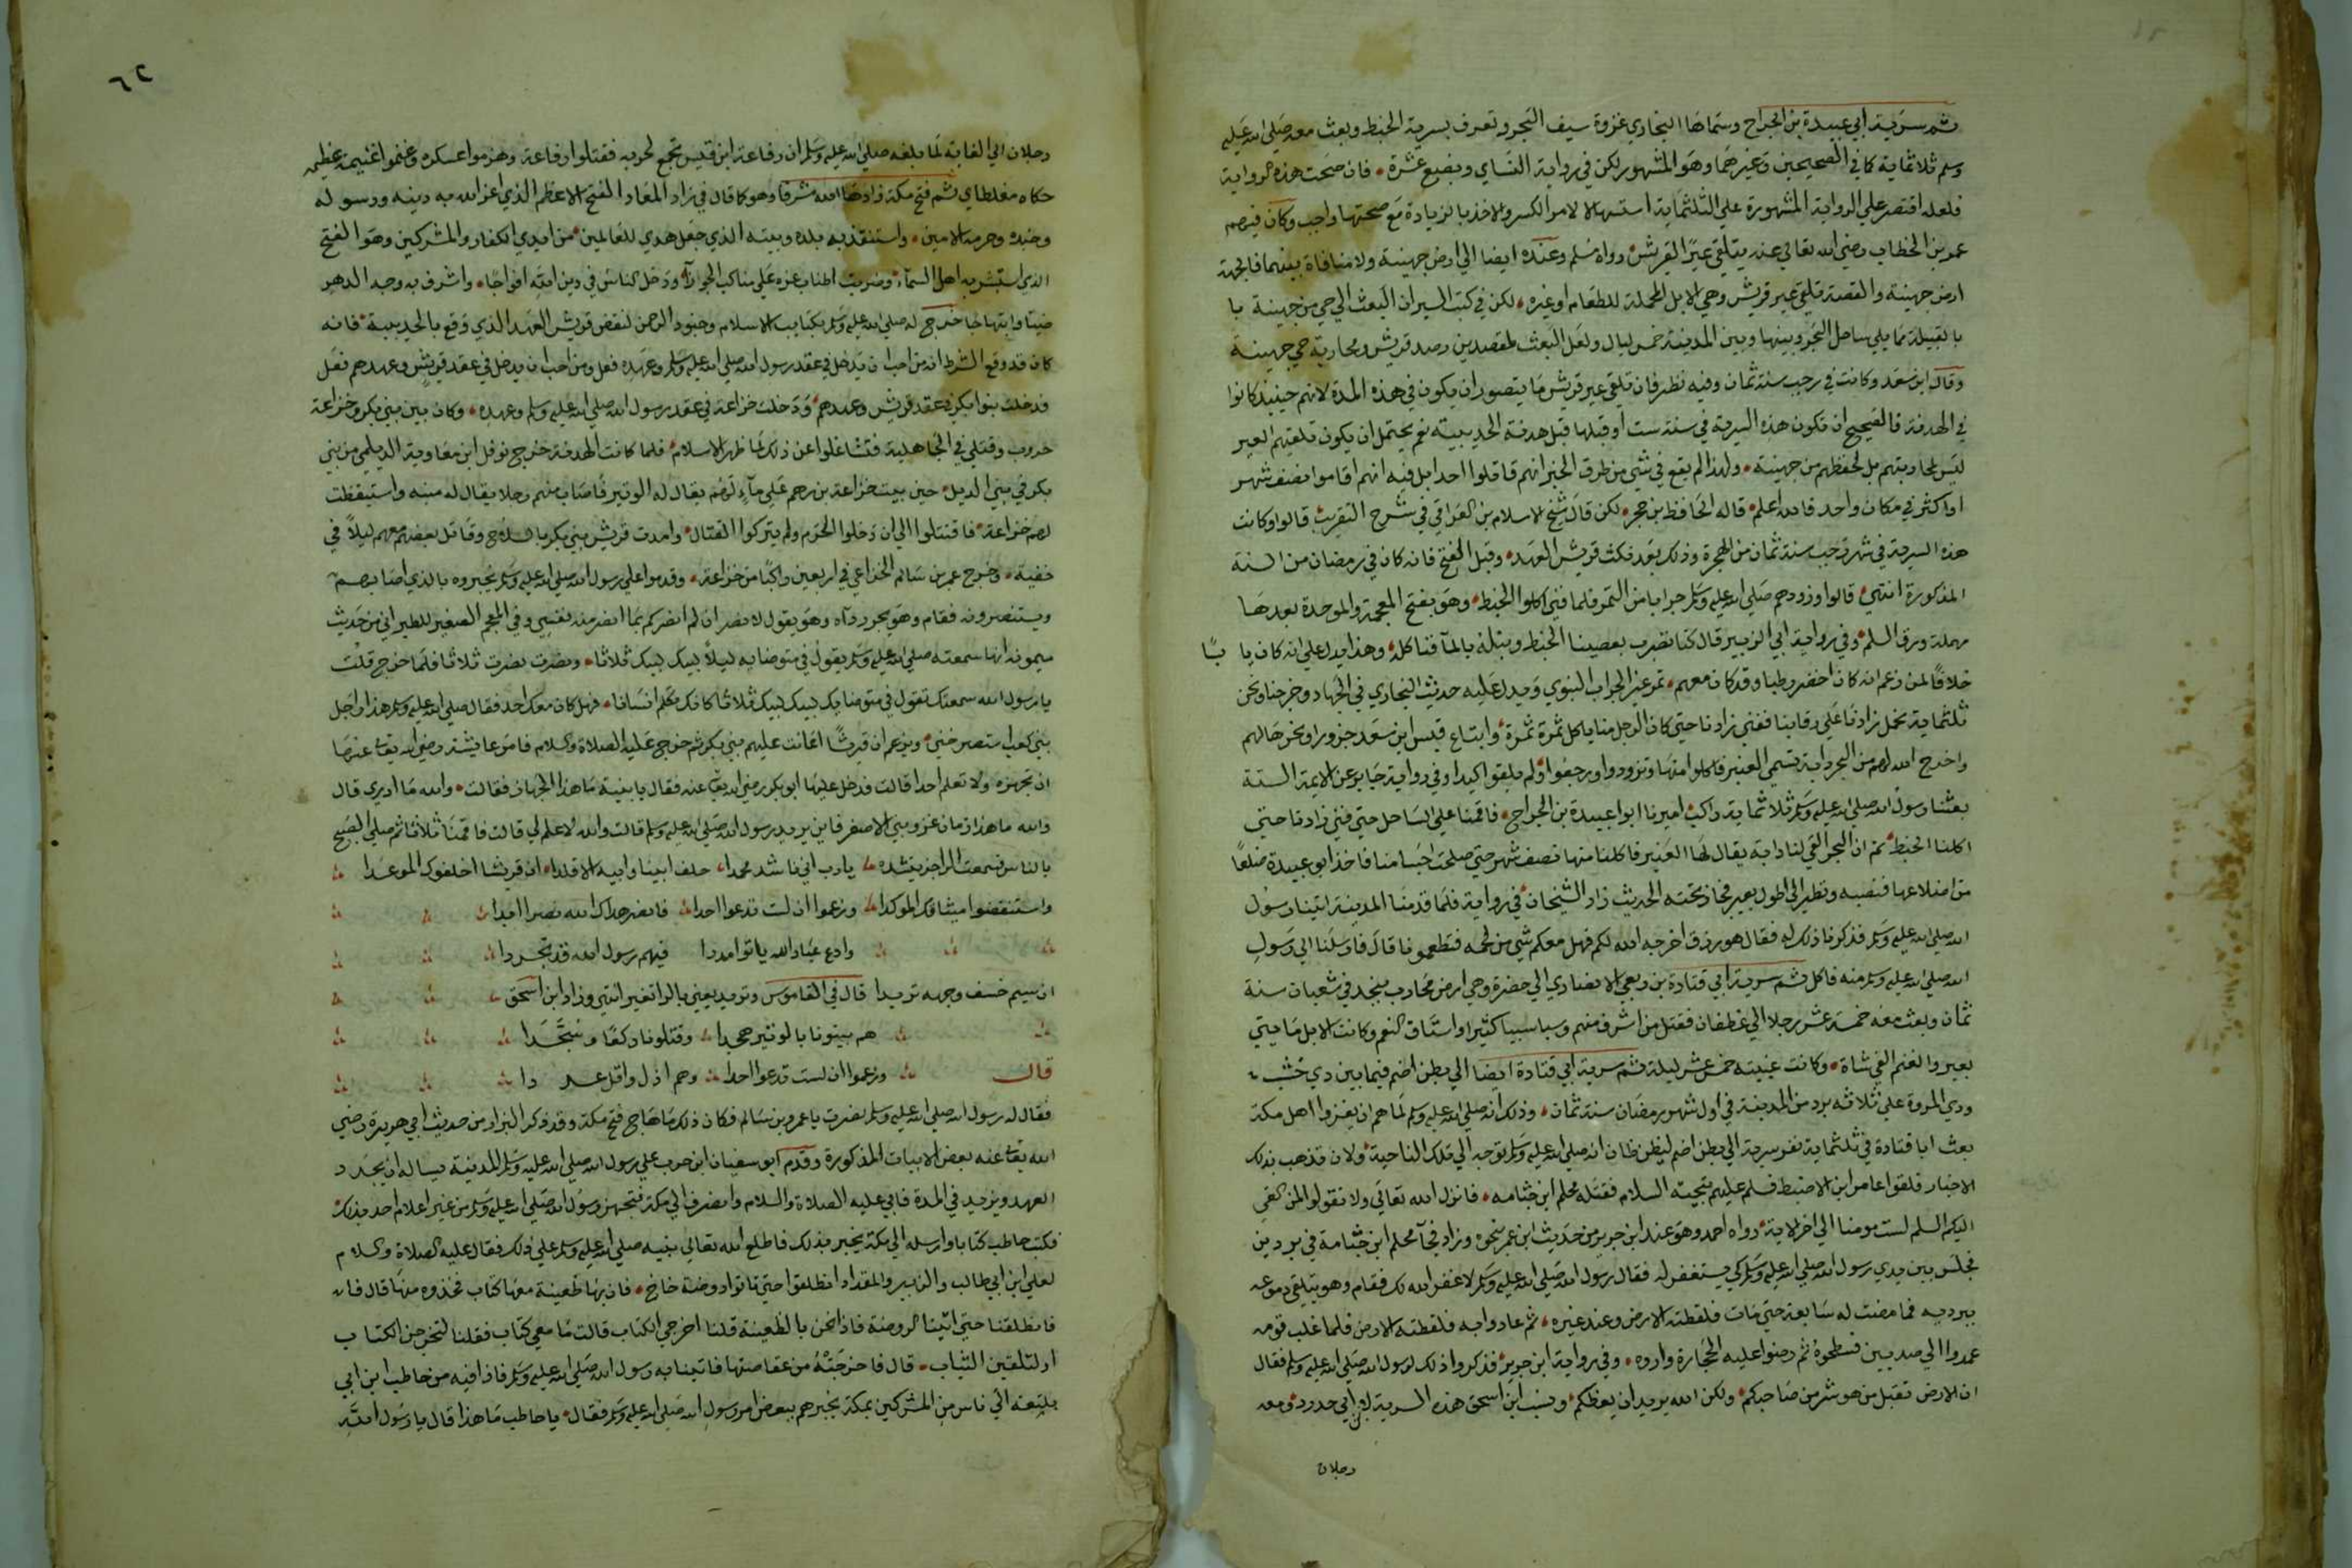 ثم سرية ابي عبيدة بن الجراح وسماها البخاري غزوة سيف البحر وتعرف بسرية الخبط وبعث معه صلى الله عليه
وسلم ثلاثماية كما في الصحيحين وغيرهما وهو المشهور لكن في رواية النساي وبضع عشرة فان صحت هذه الرواية
فلعله اقتصر على الرواية المشهورة على الثلثماية استسهالا لامر الكسر والاخذ بالزيادة مع صحتها واجب وكان فيهم
عمر بن الخطاب رضي الله تعالى عنه يتلقى عيرا لقريش رواه مسلم وعنده ايضا الى ارض جهينة ولا منافاة بينهما فالجهة
ارض جهينة والقصة تلقي عير قريش وهي الابل المحملة للطعام او غيره لكن في كتب السير ان البعث الى حي من جهينة با
بالقبيلة مما يلي ساحل البحر وبينها وبين المدينة خمس ليال ولعل البعث لمقصدين رصد قريش ومحاربة حي جهينة
وقال ابن سعد وكانت في رجب سنة ثمان وفيه نظر فان تلقي عير قريش ما يتصور ان يكون في هذه المدة لانهم حينيذ كانوا
في الهدنة فالصحيح ان تكون هذه السرية في سنة ست او قبلها قبل هدنة الحديبية نعم يحتمل ان يكون تلقيهم لعير
ليس لمحاربتهم بل لحفظهم من جهينة ولهذا لم يقع في شي من طرق الخبر انهم قاتلوا احدا بل فيه انهم اقاموا نصف شهر
او اكثر في مكان واحد فالله اعلم قاله الحافظ بن حجر لكن قال شيخ الاسلام بن العراقي في شرح التقريب قالوا وكانت
هذه السرية في شهر رجب سنة ثمان من الهجرة وذلك بعد نكث قريش العهد وقبل الفتح فانه كان في رمضان من السنة
المذكورة انتهى قالوا وزودهم صلى الله عليه وسلم جرابا من التمر فلما فني اكلوا الخبط وهو بفتح المعجمة والموحدة بعدها
مهملة ورق السلم وفي رواية ابي الزبير قال كنا نضرب بعصينا الخبط ونبله بالما فناكله وهذا يدل على انه كان يا بسا
خلافا لمن زعم انه كان اخضر رطبا وقد كان معهم تمر غير الجراب النبوي ويدل عليه حديث البخاري في الجهاد وخرجنا ونحن
ثلثماية نحمل زادنا على رقابنا ففني زادنا حتى كان الرجل منا ياكل تمرة تمرة وابتاع قيس ابن سعد جزورا ونحرها لهم
واخرج الله لهم من البحر دابة تسمى العنبر فاكلوا منها وتزودوا ورجعوا ولم يلقوا كيدا وفي رواية جابر عن الايمة الستة
بعثنا رسول الله صلى الله عليه وسلم ثلاثماية راكب اميرنا ابوا عبيدة بن الجراح فاقمنا على الساحل حتى فني زادنا حتى
اكلنا الخبط ثم ان البحر القى لنا دابة يقال لها العنبر فاكلنا منها نصف شهر حتى صلحت اجسامنا فاخذ ابو عبيدة ضلعا
من اضلاعها فنصبه ونظر الى اطول بعير فجاز تحته الحديث زاد الشيخان في رواية فلما قدمنا المدينة اتينا رسول
الله صلى الله عليه وسلم فذكرنا ذلك له فقال هو رزق اخرجه الله لكم فهل معكم شي من لحمه فتطعمونا قال فارسلنا الى رسول
الله صلى الله عليه وسلم منه فاكل ثم سرية ابي قتادة بن ربعي الانصاري الى خضرة وهي ارض محارب بنجد في شعبان سنة
ثمان وبعث معه خمسة عشر رجلا الى غطفان فقتل من اشرف منهم وسبا سبيا كثيرا واستاق النعم وكانت الابل مايتي
بعير والغنم الفي شاة وكانت غيبته خمس عشر ليلة ثم سرية ابي قتادة ايضا الى بطن اضم فيما بين ذي خشب
وذي المروة على ثلاثه برد من المدينة في اول شهر رمضان سنة ثمان وذلك انه صلى الله عليه وسلم لما هم ان يغزوا اهل مكة
بعث ابا قتادة في ثلثماية نفر سرية الى بطن اضم ليظن ظان انه صلى الله عليه وسلم توجه الى تلك الناحية ولان تذهب بذلك
الاخبار فلقوا عامر ابن الاضبط فسلم عليهم بتحية السلام فقتله محلم ابن جثامه فانزل الله تعالى ولا تقولوا لمن القى
اليكم السلم لست مومنا الى اخر الاية رواه احمد وهو عند ابن جرير من حديث ابن عمر بنحوه وزاد فجآ محلم ابن جثامة في بردين
فجلس بين يدي رسول الله صلى الله عليه وسلم كي يستغفر له فقال رسول الله صلى الله عليه وسلم لا غفر الله لك فقام وهو يتلقى دموعه
ببرديه فما مضت له سابعة حتى مات فلقظته الارض وعند غيره ثم عادوا به فلقظته الارض فلما غلب قومه
عمدوا الى صدين فسطحوه ثم رضوا عليه الحجارة واروه وفي رواية ابن جرير فذكروا ذلك لرسول الله صلى الله عليه وسلم فقال
ان الارض تقبل من هو شر من صاحبكم ولكن الله يريد ان يعظكم ونسب ابن اسحق هذه السرية لابن ابي حدرد ومعه
رجلان
٦٢
رجلان الى الغابة لما بلغه صلى الله عليه وسلم ان رفاعة ابن قيس تجمع لحربه فقتلوا رفاعة وهزموا عسكره وغنموا غنيمة عظيمه
حكاه مغلطاي ثم فتح مكة زادها الله شرفا وهو كما قال في زاد المعاد الفتح الاعظم الذي اعز الله به دينه ورسوله
وجنده وحرمه الامين واستنقذ به بلده وبيته الذي جعل هدي للعالمين من ايدي الكفار والمشركين وهو الفتح
الذي استبشر به اهل السمآء وضربت اطناب عزه على مناكب الجوزآء ودخل الناس في دين الله افواجا واشرف به وجه الدهر
ضيآ وابتهاجا خرج له صلى الله عليه وسلم بكتايب الاسلام وجنود الرحمن لنقض قريش العهد الذي وقع بالحديبية فانه
كان قد وقع الشرط انه من احب ان يدخل في عقد رسول الله صلى الله عليه وسلم وعهده فعل ومن احب ان يدخل في عقد قريش وعهدهم فعل
فدخلت بنوا بكر في عقد قريش وعهدهم ودخلت خزاعة في عقد رسول الله صلى الله عليه وسلم وعهده وكان بين بني بكر وخزاعة
حروب وقتلى في الجاهلية فتشاغلوا عن ذلك لما ظهر الاسلام فلما كانت الهدنة خرج نوفل ابن معاوية الديلمي من بني
بكر في بني الديل حين بيت خزاعة بن رحم على مآء لهم يقال له الوتير فاصاب منهم رجلا يقال له منبه واستيقظت
لهم خزاعة فاقتتلوا الى ان دخلوا الحرم ولم يتركوا القتال وامدت قريش بني بكر بالسلاح وقاتل بعضهم معهم ليلا في
خفية وخرج عمر بن سالم الخزاعي في اربعين راكبا من خزاعة وقدموا على رسول الله صلى الله عليه وسلم يخبروه بالذي اصابهم
ويستنصرونه فقام وهو يجر ردآه وهو يقول لا نصر ان لم انصركم بما انصر منه نفسي وفي المعجم الصغير للطبراني من حديث
ميمونه انها سمعته صلى الله عليه وسلم يقول في متوضايه ليلا لبيك لبيك ثلاثا ونصرت نصرت ثلاثا فلما خرج قلت
يا رسول الله سمعتك تقول في متوضايك لبيك لبيك ثلاثا كانك تكلم انسانا فهل كان معك احد فقال صلى الله عليه وسلم هذا راجل
بني كعب استصرخني ويزعم ان قريشا اعانت عليهم بني بكر ثم خرج عليه الصلاة والسلام فامر عايشة رضي الله تعا عنها
ان تجهزه ولا تعلم احدا قالت فدخل عليها ابو بكر رضي الله تعا عنه فقال يا بنية ما هذا الجهاز فقالت والله ما ادري قال
والله ما هذا زمان غزو بني الاصفر فاين يريد رسول الله صلى الله عليه وسلم قالت والله لا علم لي قالت فاقمنا ثلاثا ثم صلى الصبح
بالناس فسمعت الراجز ينشده يا رب اني ناشد محمدا حلف ابينا وابيه الاتلدا ان قريشا اخلفوك الموعدا
واستنقضوا ميثاقك الموكدا وزعموا ان لست تدعوا احدا فانصر هداك الله نصرا ابدا
وادع عباد الله ياتوا مددا فيهم رسول الله قد تجردا
ان سيم خسف وجهه تربدا قال في القاموس وتربد يعني بالرا تغير انتهى وزاد ابن اسحق
هم بيتونا بالوتير هجدا وقتلونا ركعا وسجدا
قال وزعموا ان لست تدعوا احدا وهم اذل واقل عددا
فقال له رسول الله صلى الله عليه وسلم نصرت يا عمرو بن سالم فكان ذلك ما هاج فتح مكة وقد ذكر البزار من حديث ابي هريرة رضي
الله تعا عنه بعض الابيات المذكورة وقدم ابو سفيان ابن حرب على رسول الله صلى الله عليه وسلم المدينة يساله ان يجدد
العهد ويزيد في المدة فابى عليه الصلاة والسلام وانصرف الى مكة فتجهز رسول الله صلى الله عليه وسلم من غير اعلام احد بذلك
فكتب حاطب كتابا وارسله الى مكة يخبر بذلك فاطلع الله تعالى نبيه صلى الله عليه وسلم على ذلك فقال عليه الصلاة والسلام
لعلي ابن ابي طالب والزبير والمقداد انطلقوا حتى تاتوا روضة خاخ فان بها ظعينة معها كتاب فخذوه منها قال فان
فانطلقنا حتى اتينا الروضة فاذا نحن بالظعينة قلنا اخرجي الكتاب قالت ما معي كتاب فقلنا لتخرجن الكتاب
او لتلقين الثياب قال فاخرجته من عقاصتها فاتينا به رسول الله صلى الله عليه وسلم فاذا فيه من حاطب ابن ابي
بلتعه الى ناس من المشركين بمكة يخبرهم ببعض امر رسول الله صلى الله عليه وسلم فقال يا حاطب ما هذا قال يا رسول الله